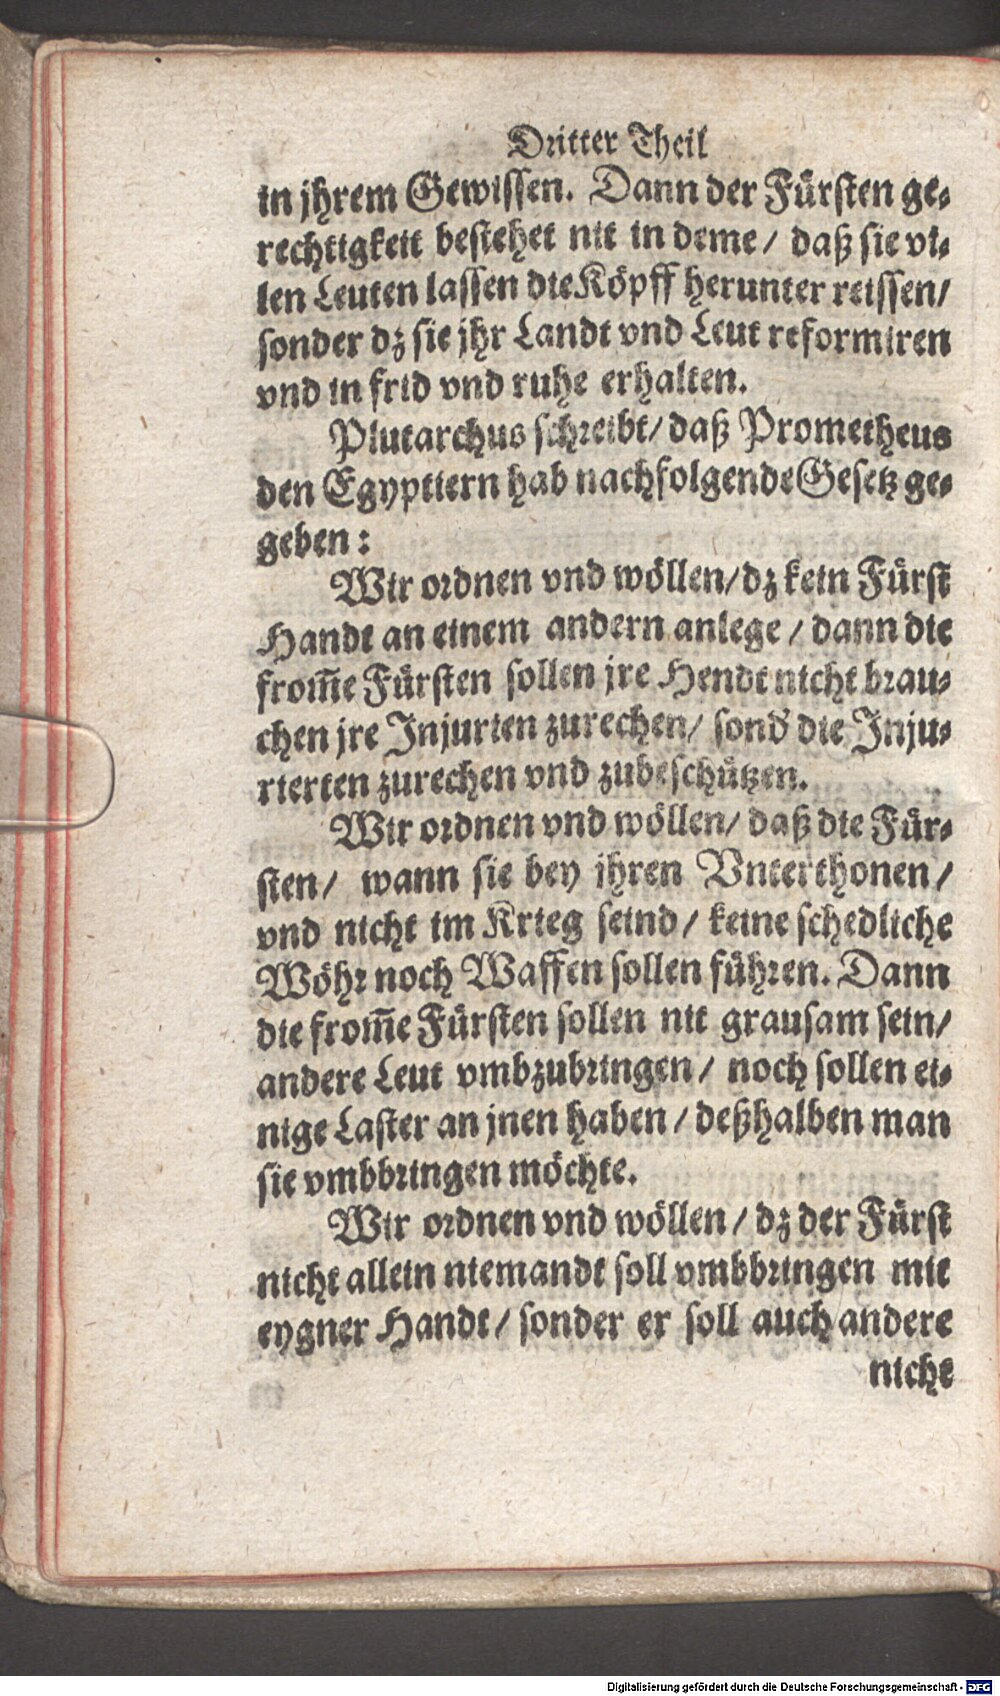 Dritter Theil
in jhrem Gewissen. Dann der Fürsten ge-
rechtigkeit bestehet nit in deme / daß sie vi-
len Leuten lassen die Köpff herunter reissen/
sonder dz sie jhr Landt vnd Leut reformiren
vnd in frid vnd ruhe erhalten.
Plutarchus schreibt/ daß Prometheus
den Egyptiern hab nachfolgende Gesetz ge-
geben:
Wir ordnen vnd wöllen/dz kein Fürst
Handt an einem andern anlege / dann die
from̅e Fürsten sollen jre Hendt nicht brau-
chen jre Injurien zurechen/ sond' die Inju-
rierten zurechen vnd zubeschützen.
Wir ordnen vnd wöllen/ daß die Für-
sten/ wann sie bey jhren Vnterthonen/
vnd nicht im Krieg seind/ keine schedliche
Wöhr noch Waffen sollen führen. Dann
die from̅e Fürsten sollen nit grausam sein/
andere Leut vmbzubringen / noch sollen ei-
nige Laster an jnen haben / deßhalben man
sie vmbbringen möchte.
Wir ordnen vnd wöllen / dz der Fürst
nicht allein niemandt soll vmbbringen mit
eygner Handt / sonder er soll auch andere
nicht
Digitalisierung gefördert durch die Deutsche Forschungsgemeinschaft - DFG